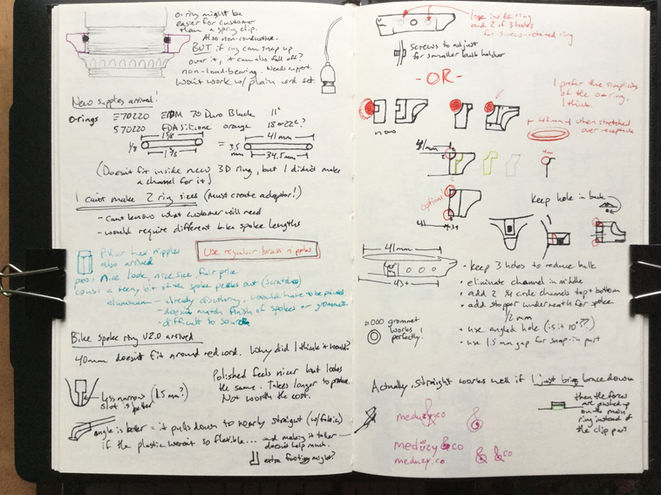 O-ring might be
easier for customer
than a spring clip.
Also non-conductive.
BUT if ring can snap up
over it, it can also fall off?
non-load-bearing. Needs support.
Won't work w/ plain cord set.
New supplies arrived!
O-rings E70220 EPDM 70 Duro Black 11¢
S70220 FDA Silicone orange 18 or 22¢?
1 5/8
41mm
1/8
1 3/8
=
3.5 mm
34.5mm
(Doesn't fit inside new 3D ring, but I didn't make
a channel for it)
I can't make 2 ring sizes (Must create adaptor!)
- Can't know what customer will need
- would require different bike spoke lengths
nipples
also arrived
Use regular brass nipples
pros: Nice look, nice size for price
cons: a teeny bit of spoke peeks out (scratches)
aluminum - already
- doesn't match finish of spokes or grommets
- difficult to source
Bike spoke ring V2.0 arrived
40mm doesn't fit around red cord. Why did I think it would?
Less narrow (1.5mm?)
slot is better
Polished feels nicer but looks
the same. Takes longer to produce.
Not worth the cost.
angle is better - it pulls down to nearly straight (w/ fabric)
if the plastic weren't so flexible... and making it taller
doesn't help much.
extra footing might?
use inside ring
and 2 if 3 holes
for screw-retained ring
screws to adjust
for smaller bulb holder
-OR-
I prefer the simplicity
of the o-ring,
I think.
42mm when stretched
over receptacle
41mm
optional
41
Keep hole in back
41mm
43+
• keep 3 holes to reduce bulk
• eliminate channel in middle
• add 2 1/4 circle channels top + bottom
• add stopper underneath for spoke
1/2 mm
• use angled hole (is it 10°??)
• use 1.5mm gap for snap-in part
grommet
works
perfectly.
Actually, straight works well if I just bring brace down
then the forces
are pushed up
on the main
ring instead of
the clip part
meduzy&co
&
meduzy&co
meduzy.co
& &co